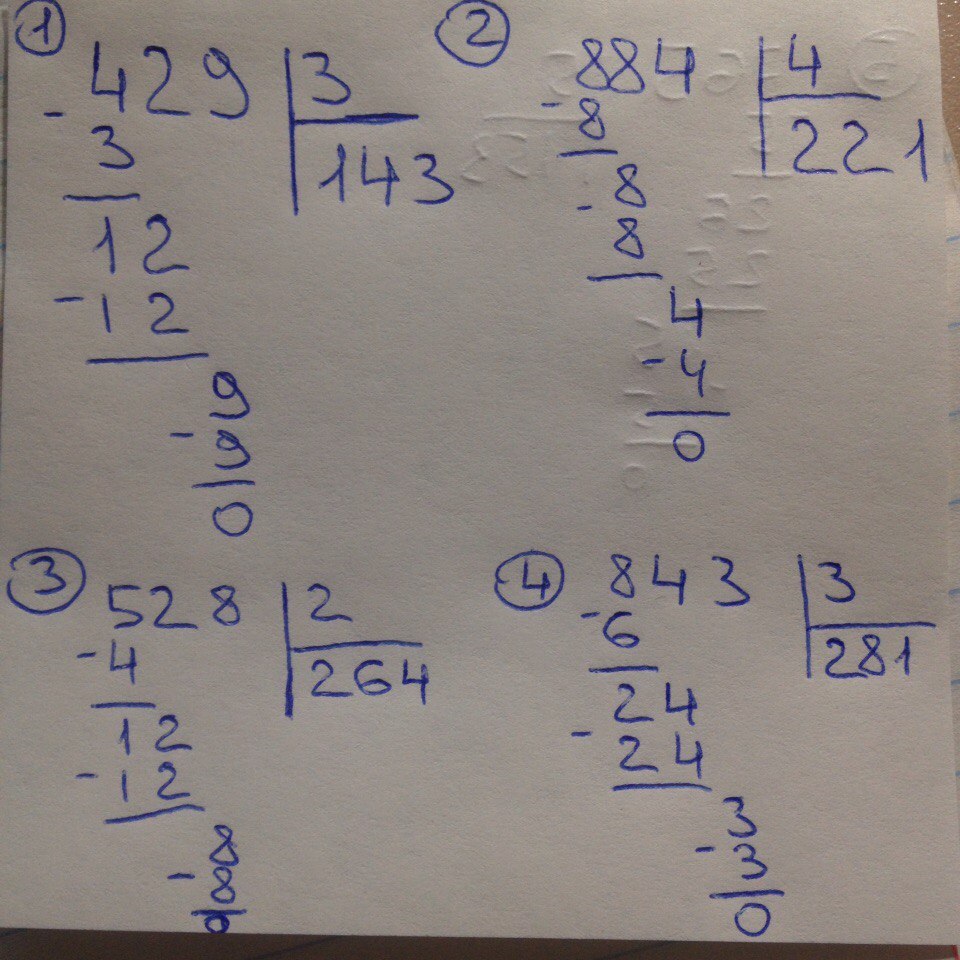 ① 429 | 3
- 3 | 143
12
- 12
9
- 9
0
② 884 | 4
- 8 | 221
8
- 8
4
- 4
0
③ 528 | 2
- 4 | 264
12
- 12
8
- 8
0
④ 843 | 3
- 6 | 281
24
- 24
3
- 3
0